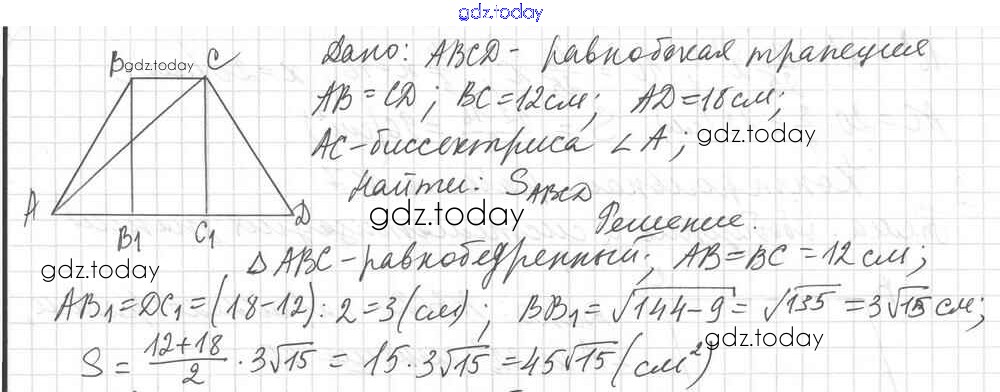 gdz.today
B gdz.today C
Дано: ABCD - равнобокая трапеция
AB = CD; BC = 12 см; AD = 18 см;
AC - биссектриса ∠A; gdz.today
Найти: S_ABCD
gdz.today
Решение.
A B₁ C₁ D
gdz.today
Δ ABC - равнобедренный; AB = BC = 12 см;
AB₁ = DC₁ = (18-12) : 2 = 3 (см); BB₁ = √144-9 = √135 = 3√15 см;
gdz.today
S = 12+18/2 · 3√15 = 15 · 3√15 = 45√15 (см²)